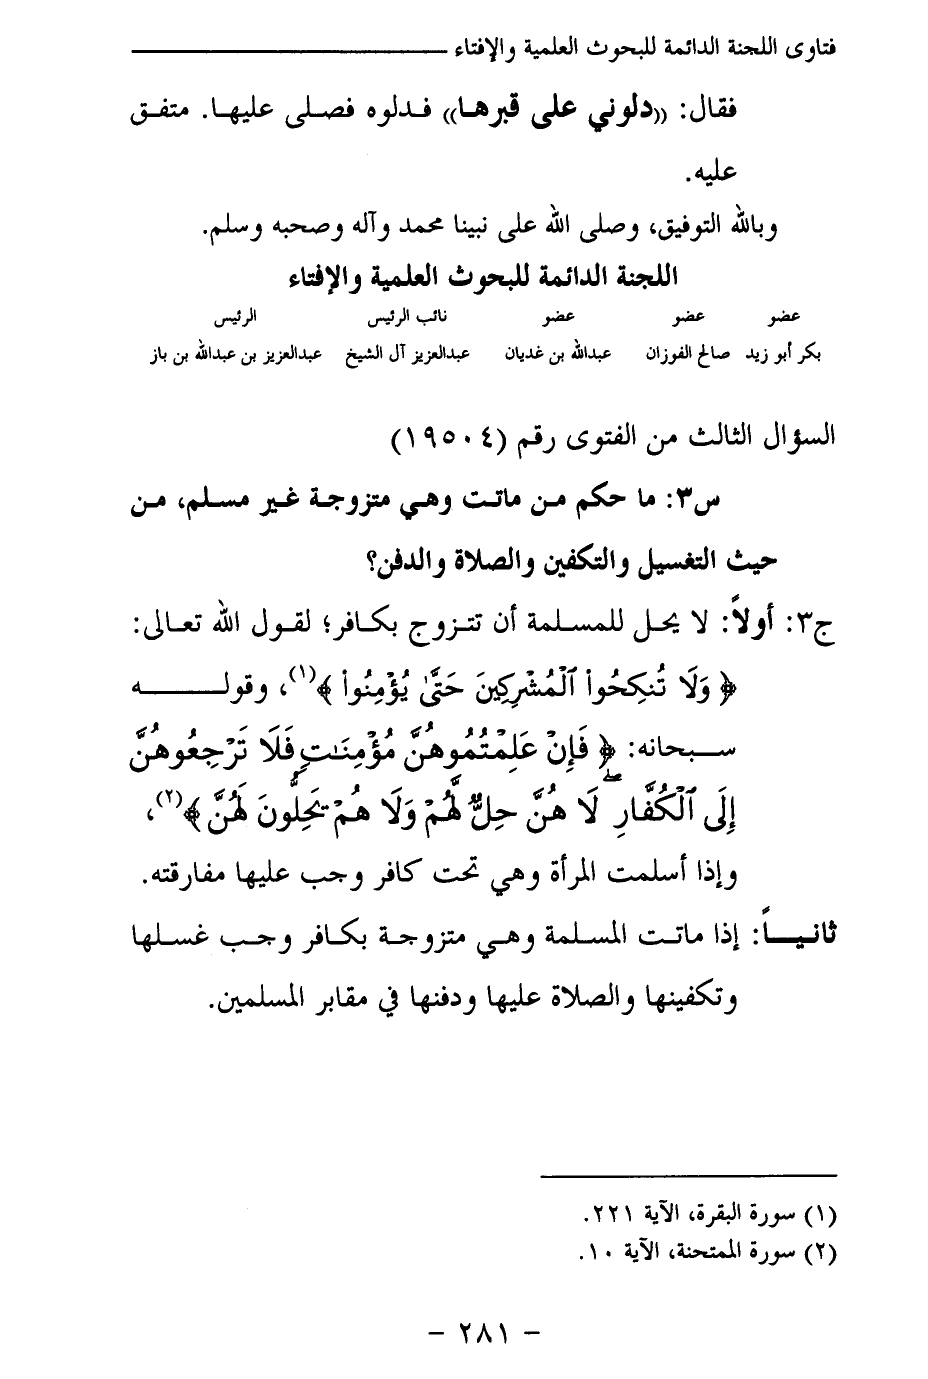 فتاوى اللجنة الدائمة للبحوث العلمية والإفتاء
فقال: ((دلوني على قبرها)) فدلوه فصلى عليها. متفق
عليه.
وبالله التوفيق، وصلى الله على نبينا محمد وآله وصحبه وسلم.
اللجنة الدائمة للبحوث العلمية والإفتاء
عضو عضو عضو نائب الرئيس الرئيس
بكر أبو زيد صالح الفوزان عبدالله بن غديان عبدالعزيز آل الشيخ عبدالعزيز بن عبدالله بن باز
السؤال الثالث من الفتوى رقم (١٩٥٠٤)
س٣: ما حكم من ماتت وهي متزوجة غير مسلم، من
حيث التغسيل والتكفين والصلاة والدفن؟
ج٣: أولاً: لا يحل للمسلمة أن تتزوج بكافر؛ لقول الله تعالى:
﴿ وَلَا تُنكِحُوا۟ ٱلْمُشْرِكِينَ حَتَّىٰ يُؤْمِنُوا۟ ﴾(١)، وقوله
سبحانه: ﴿ فَإِنْ عَلِمْتُمُوهُنَّ مُؤْمِنَٰتٍ فَلَا تَرْجِعُوهُنَّ
إِلَى ٱلْكُفَّارِ ۖ لَا هُنَّ حِلٌّ لَّهُمْ وَلَا هُمْ يَحِلُّونَ لَهُنَّ ﴾(٢)،
وإذا أسلمت المرأة وهي تحت كافر وجب عليها مفارقته.
ثانياً: إذا ماتت المسلمة وهي متزوجة بكافر وجب غسلها
وتكفينها والصلاة عليها ودفنها في مقابر المسلمين.
(١) سورة البقرة، الآية ٢٢١.
(٢) سورة الممتحنة، الآية ١٠.
- ٢٨١ -